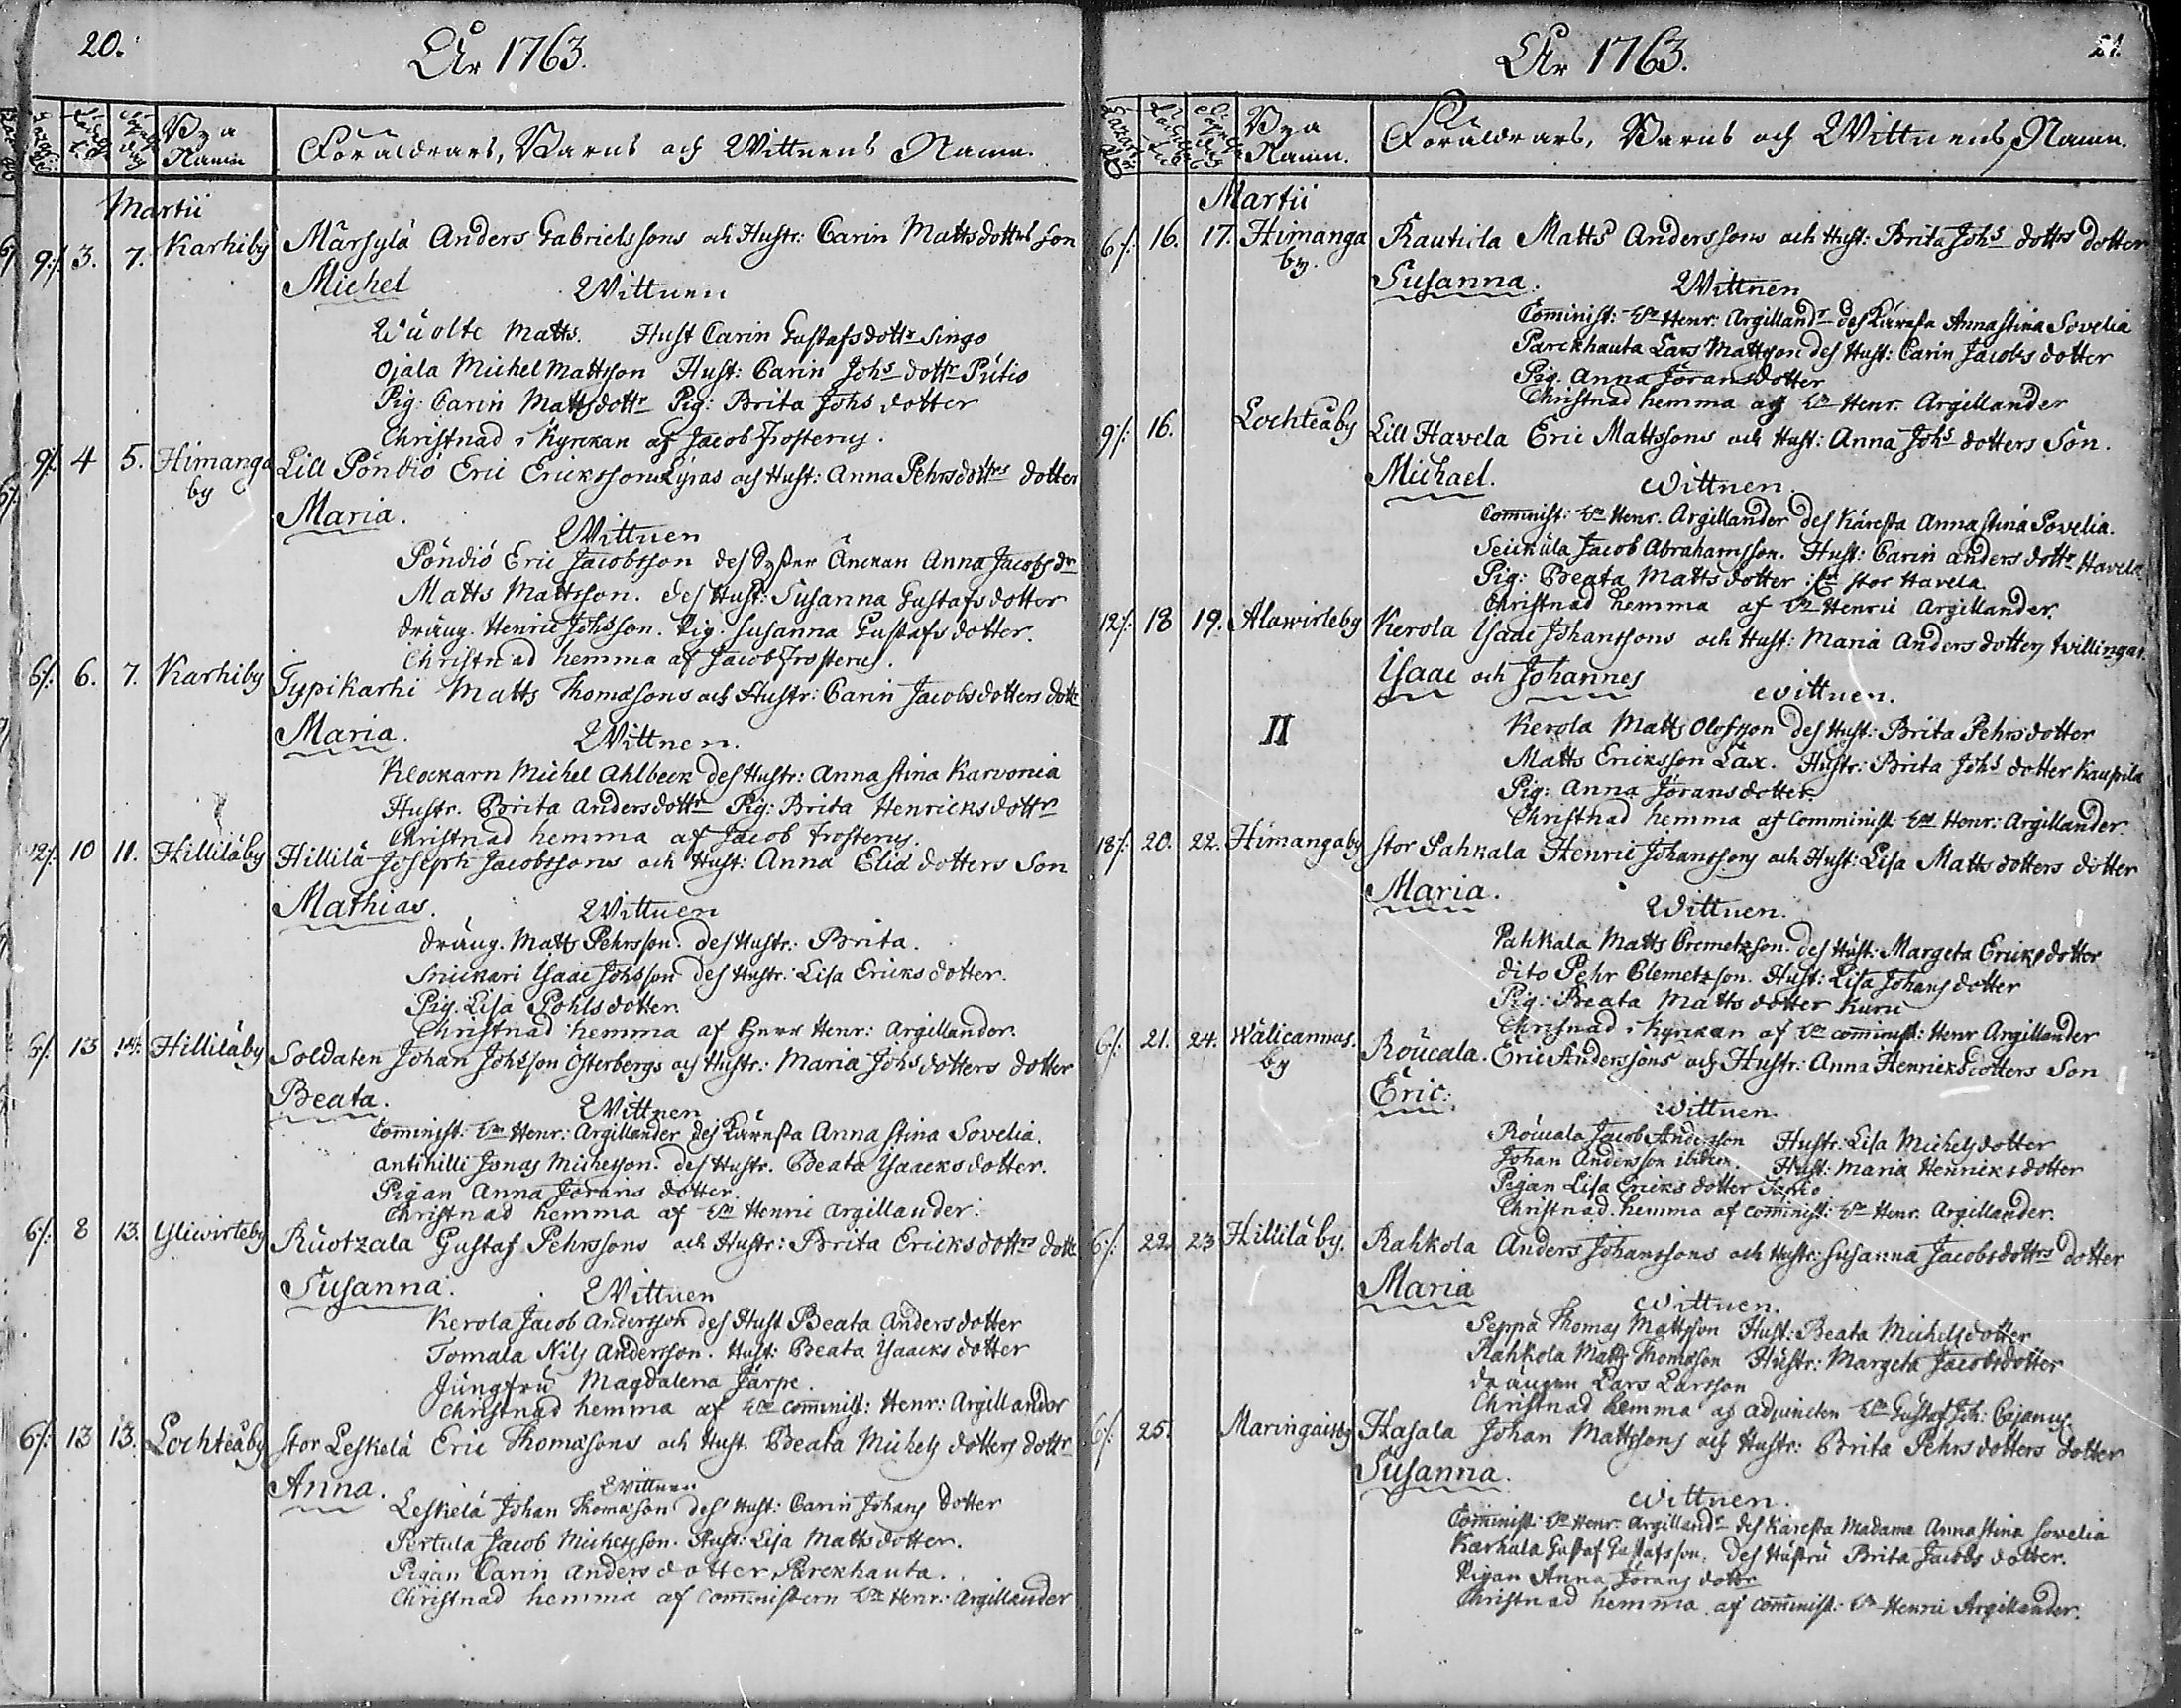 20.
År 1763.
Bya Namn
Föräldrars, Barns och Wittnens Namn.
Martii
9/. 3. 7. Karhiby Märsylä Anders Gabrielssons och Hustr: Carin Mattsdottrs Son
Michel Wittnen
Matts. Hust Carin Gustafsdottr Singo
Ojala Michel Mattsson Hust: Carin Johs dottr Putio
Pig: Carin Mattsdottr Pig: Brita Johs dotter
Christnad i Kyrckan af Jacob Frosterus.
9/. 4 5. Himanga Lill Pöndiö Eric Ericksson Lyras och Hust: Anna Pehrsdottrs dotter
by
Maria.
Wittnen
Pöndiö Eric Jacobsson des Syster Änckan Anna Jacobsdr
Matts Mattsson. des Hust: Susanna Gustafsdotter
dräng. Henric Johsson. Pig. Susanna Gustafsdotter.
Christnad hemma af Jacob Frosterus.
6/. 6. 7. Karhiby Typikarhi Matts Thomæsons och Hustr: Carin Jacobsdotters dottr
Maria. Wittnen.
Klockarn Michel Ahlbeck des Hustr: Anna Stina Karvonia
Hustr. Brita Andersdottr Pig: Brita Henricksdottr
Christnad hemma af Jacob Frosterus.
12/. 10 11. Hilliläby Hillilä Joseph Jacobssons och Hust: Anna Eliæ dotters Son
Mathias. Wittnen
dräng. Matts Pehrsson. des Hustr: Brita.
Snickari Isaac Johsson des Hustr: Lisa Ericksdotter.
Pig. Lisa Pohlsdotter
Christnad hemma af Herr Henr: Argillander.
6/. 13 14. Hilliläby Soldaten Johan Johsson Österbergs och Hustr: Maria Johsdotters dotter
Beata. Wittnen
Comminist: Hr Henr: Argillander des Kärasta Anna Stina Sovelia.
Antihilli Jonas Michelsson. des Hustr. Beata Isaacksdotter.
Pigan Anna Jörans dotter.
Christnad hemma af Hr Henric Argillander.
6/. 8 13. Yliwirteby Ruotzala Gustaf Pehrssons och Hustr: Brita Ericksdottrs dottr
Susanna. Wittnen
Kerola Jacob Andersson des Hust Beata Andersdotter
Tomala Nils Andersson. Hust: Beata Isaacksdotter
Jungfru Magdalena Järpe.
Christnad hemma af Hr Comminist: Henr: Argillander
6/. 13 13. Lochteåby Stor Leskelä Eric Thomæsons och Hust. Beata Michels dotters dottr
Anna. Wittnen
Leskelä Johan Thomæson des Hust: Carin Johans dotter
Pertula Jacob Michelsson. Hust: Lisa Mattsdotter.
Pigan Carin Andersdotter Parckhauta.
Christnad hemma af Comministern Hr Henr: Argillander
21.
År 1763.
Bya Namn.
Föräldrars, Barns och Wittnens Namn.
Martii
6/. 16. 17. Himanga Rautiola Matts Anderssons och Hust: Brita Johs dottrs dotter
by.
Susanna. Wittnen
Comminist: Hr Henr: Argillandr des Kärasta Anna Stina Sovelia
Parckhauta Lars Mattsson des Hust: Carin Jacobsdotter
Pig. Anna Jöransdotter
Christnad hemma af Hr Henr. Argillander
9/. 16. Lochteåby Lill Havela Eric Mattssons och Hust: Anna Johs dotters Son.
Michael. Wittnen.
Comminist: Hr Henr. Argillander des Käresta Anna Stina Sovelia.
Jacob Abrahamsson. Hust: Carin Anders dottr Havela
Pig: Beata Matts dotter Stor Havela
Christnad hemma af Hr Henric Argillander.
12/. 18 19. Alawirteby Kerola Isaac Johanssons och Hust: Maria Andersdotters twillingar.
Isaac och Johannes Wittnen.
II
Kerola Matts Olofsson des Hust: Brita Pehrsdotter
Matts Ericksson Lax. Hustr: Brita Johs dotter Kaupila
Pig: Anna Jöransdotter.
Christnad hemma af Comminist Hr Henr: Argillander.
18/. 20. 22. Himangaby Stor Pahkala Henric Johanssons och Hust: Lisa Matts dotters dotter
Maria. Wittnen.
Pahkala Matts Clemetzson. des Hust: Margeta Ericksdotter
dito Pehr Clemetzson. Hust: Lisa Johans dotter
Pig: Beata Matts dotter Kuru
Christnad i Kyrckan af Hr Comminist: Henr Argillander
6/. 21. 24. Wälicannus. Roucala. Eric Anderssons och Hustr: Anna Henricksdotters Son
by
Eric. Wittnen.
Roucala Jacob Andersson Hustr: Lisa Michelsdotter
Johan Andersson ibidem. Hust: Maria Henricksdotter
Pigan Lisa Ericks dotter
Christnad hemma af Comminist: Hr Henr. Argillander.
6/. 22. 23 Hilliläby. Rahkola Anders Johanssons och Hustr: Susanna Jacobsdottrs dotter
Maria Wittnen.
Seppä Thomas Mattsson Hust: Beata Michelsdotter
Rahkola Matts Thomæson Hustr: Margeta Jacobsdotter
drängen Lars Larsson
Christnad hemma af Adjuncten Hr Gustaf Joh: Cajanus.
6/. 25. Maringaisby Hasala Johan Mattssons och Hustr: Brita Pehrs dotters dotter
Susanna. Wittnen.
Comminist: Hr Henr: Argillandr des Käresta Madama Anna Stina Sovelia
Karhula Gustaf Gustafsson. des Hustru Brita Jacobsdotter.
Pigan Anna Jörans dottr
Christnad hemma af Comminist: Hr Henric Argillander.